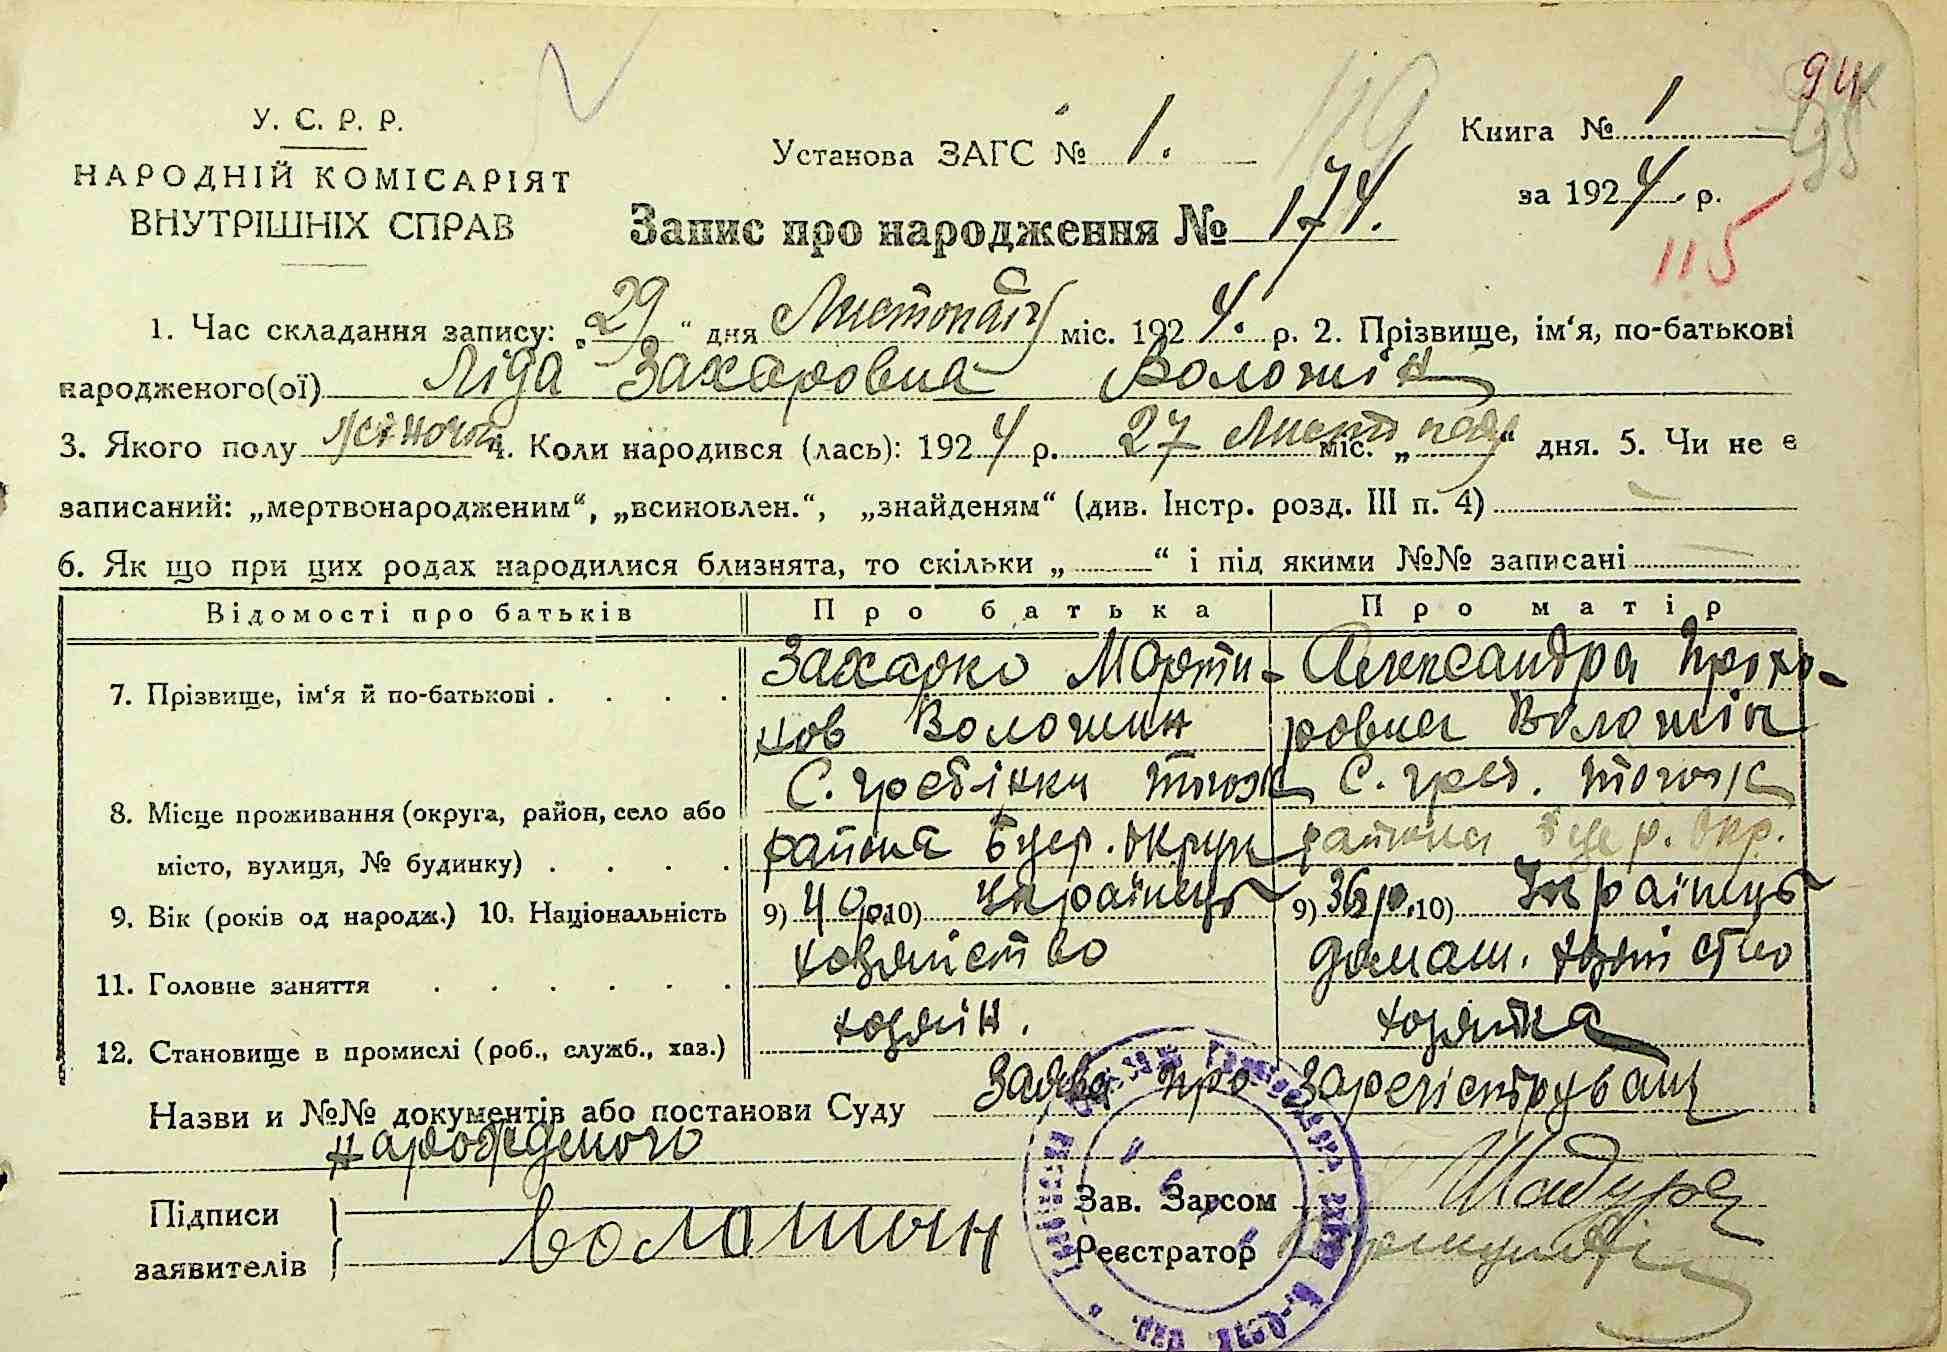 94
95
У. С. Р. Р.
НАРОДНІЙ КОМІСАРІЯТ
ВНУТРІШНІХ СПРАВ
Установа ЗАГС № 1.
119
Книга № 1
за 1924 р.
Запис про народження № 174.
115
1. Час складання запису: „29“ дня Листопаду міс. 1924. р. 2. Прізвище, ім‘я, по-батькові
народженого(ої) Ліда Захаровна Волошін
3. Якого полу жіночa 4. Коли народився (лась): 1924 р. 27 Листопаду міс. „ “ дня. 5. Чи не є
записаний: „мертвонародженим“, „всиновлен.“, „знайденям“ (див. Інстр. розд. III п. 4)
6. Як що при цих родах народилися близнята, то скільки „ “ і під якими №№ записані
Відомості про батьків Про батька Про матір
7. Прізвище, ім‘я й по-батькові . . . . Захарко Марти- Александра Прохо-
нов Волошин ровна Волошін
8. Місце проживання (округа, район, село або С. Гребінки тогож С. Греб. тогож
місто, вулиця, № будинку) . . . . района Бцер. Округи района Бцер. Окр.
9. Вік (років од народж.) 10. Національність 9) 40р. 10) Українець 9) 36р. 10) Українець
11. Головне заняття . . . . . . . хозяйство домаш. хозяйство
12. Становище в промислі (роб., служб., хаз.) хозяїн. хозяйка
Назви и №№ документів або постанови Суду Заява про зарегіструваня
нарожденого
Підписи
заявителів
Волошин
Зав. Загсом Шадура
Реєстратор